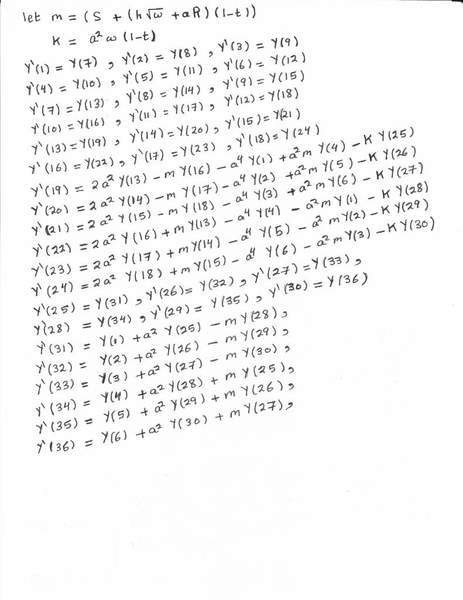 let m = (S + (h√ω + aR)(1-t))
K = a²ω(1-t)
Y'(1) = Y(7), Y'(2) = Y(8), Y'(3) = Y(9)
Y'(4) = Y(10), Y'(5) = Y(11), Y'(6) = Y(12)
Y'(7) = Y(13), Y'(8) = Y(14), Y'(9) = Y(15)
Y'(10) = Y(16), Y'(11) = Y(17), Y'(12) = Y(18)
Y'(13) = Y(19), Y'(14) = Y(20), Y'(15) = Y(21)
Y'(16) = Y(22), Y'(17) = Y(23), Y'(18) = Y(24)
Y'(19) = 2a² Y(13) - m Y(16) - a⁴ Y(1) + a² m Y(4) - K Y(25)
Y'(20) = 2a² Y(14) - m Y(17) - a⁴ Y(2) + a² m Y(5) - K Y(26)
Y'(21) = 2a² Y(15) - m Y(18) - a⁴ Y(3) + a² m Y(6) - K Y(27)
Y'(22) = 2a² Y(16) + m Y(13) - a⁴ Y(4) - a² m Y(1) - K Y(28)
Y'(23) = 2a² Y(17) + m Y(14) - a⁴ Y(5) - a² m Y(2) - K Y(29)
Y'(24) = 2a² Y(18) + m Y(15) - a⁴ Y(6) - a² m Y(3) - K Y(30)
Y'(25) = Y(31), Y'(26) = Y(32), Y'(27) = Y(33),
Y'(28) = Y(34), Y'(29) = Y(35), Y'(30) = Y(36)
Y'(31) = Y(1) + a² Y(25) - m Y(28),
Y'(32) = Y(2) + a² Y(26) - m Y(29),
Y'(33) = Y(3) + a² Y(27) - m Y(30),
Y'(34) = Y(4) + a² Y(28) + m Y(25),
Y'(35) = Y(5) + a² Y(29) + m Y(26),
Y'(36) = Y(6) + a² Y(30) + m Y(27),